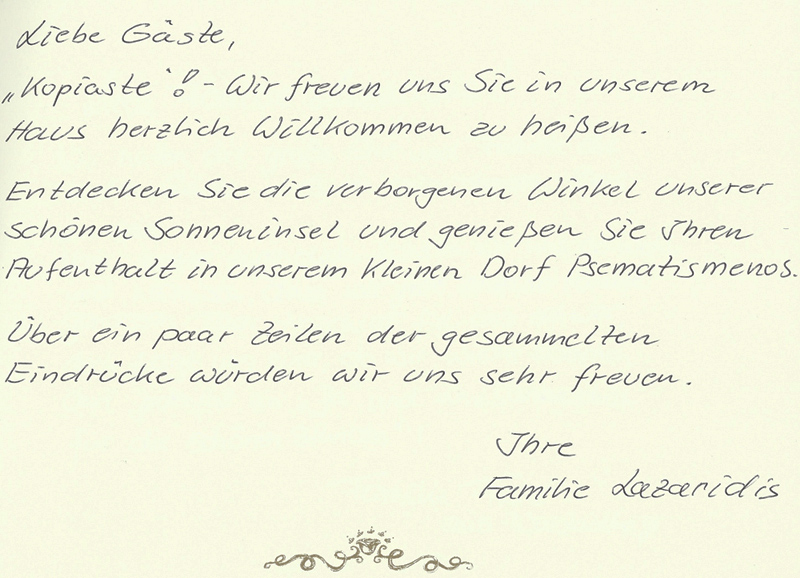 Liebe Gäste,
„Kopiaste“! - Wir freuen uns Sie in unserem
Haus herzlich Willkommen zu heißen.
Entdecken Sie die verborgenen Winkel unserer
schönen Sonneninsel und genießen Sie Ihren
Aufenthalt in unserem kleinen Dorf Psematismenos.
Über ein paar Zeilen der gesammelten
Eindrücke würden wir uns sehr freuen.
Ihre
Familie Lazaridis